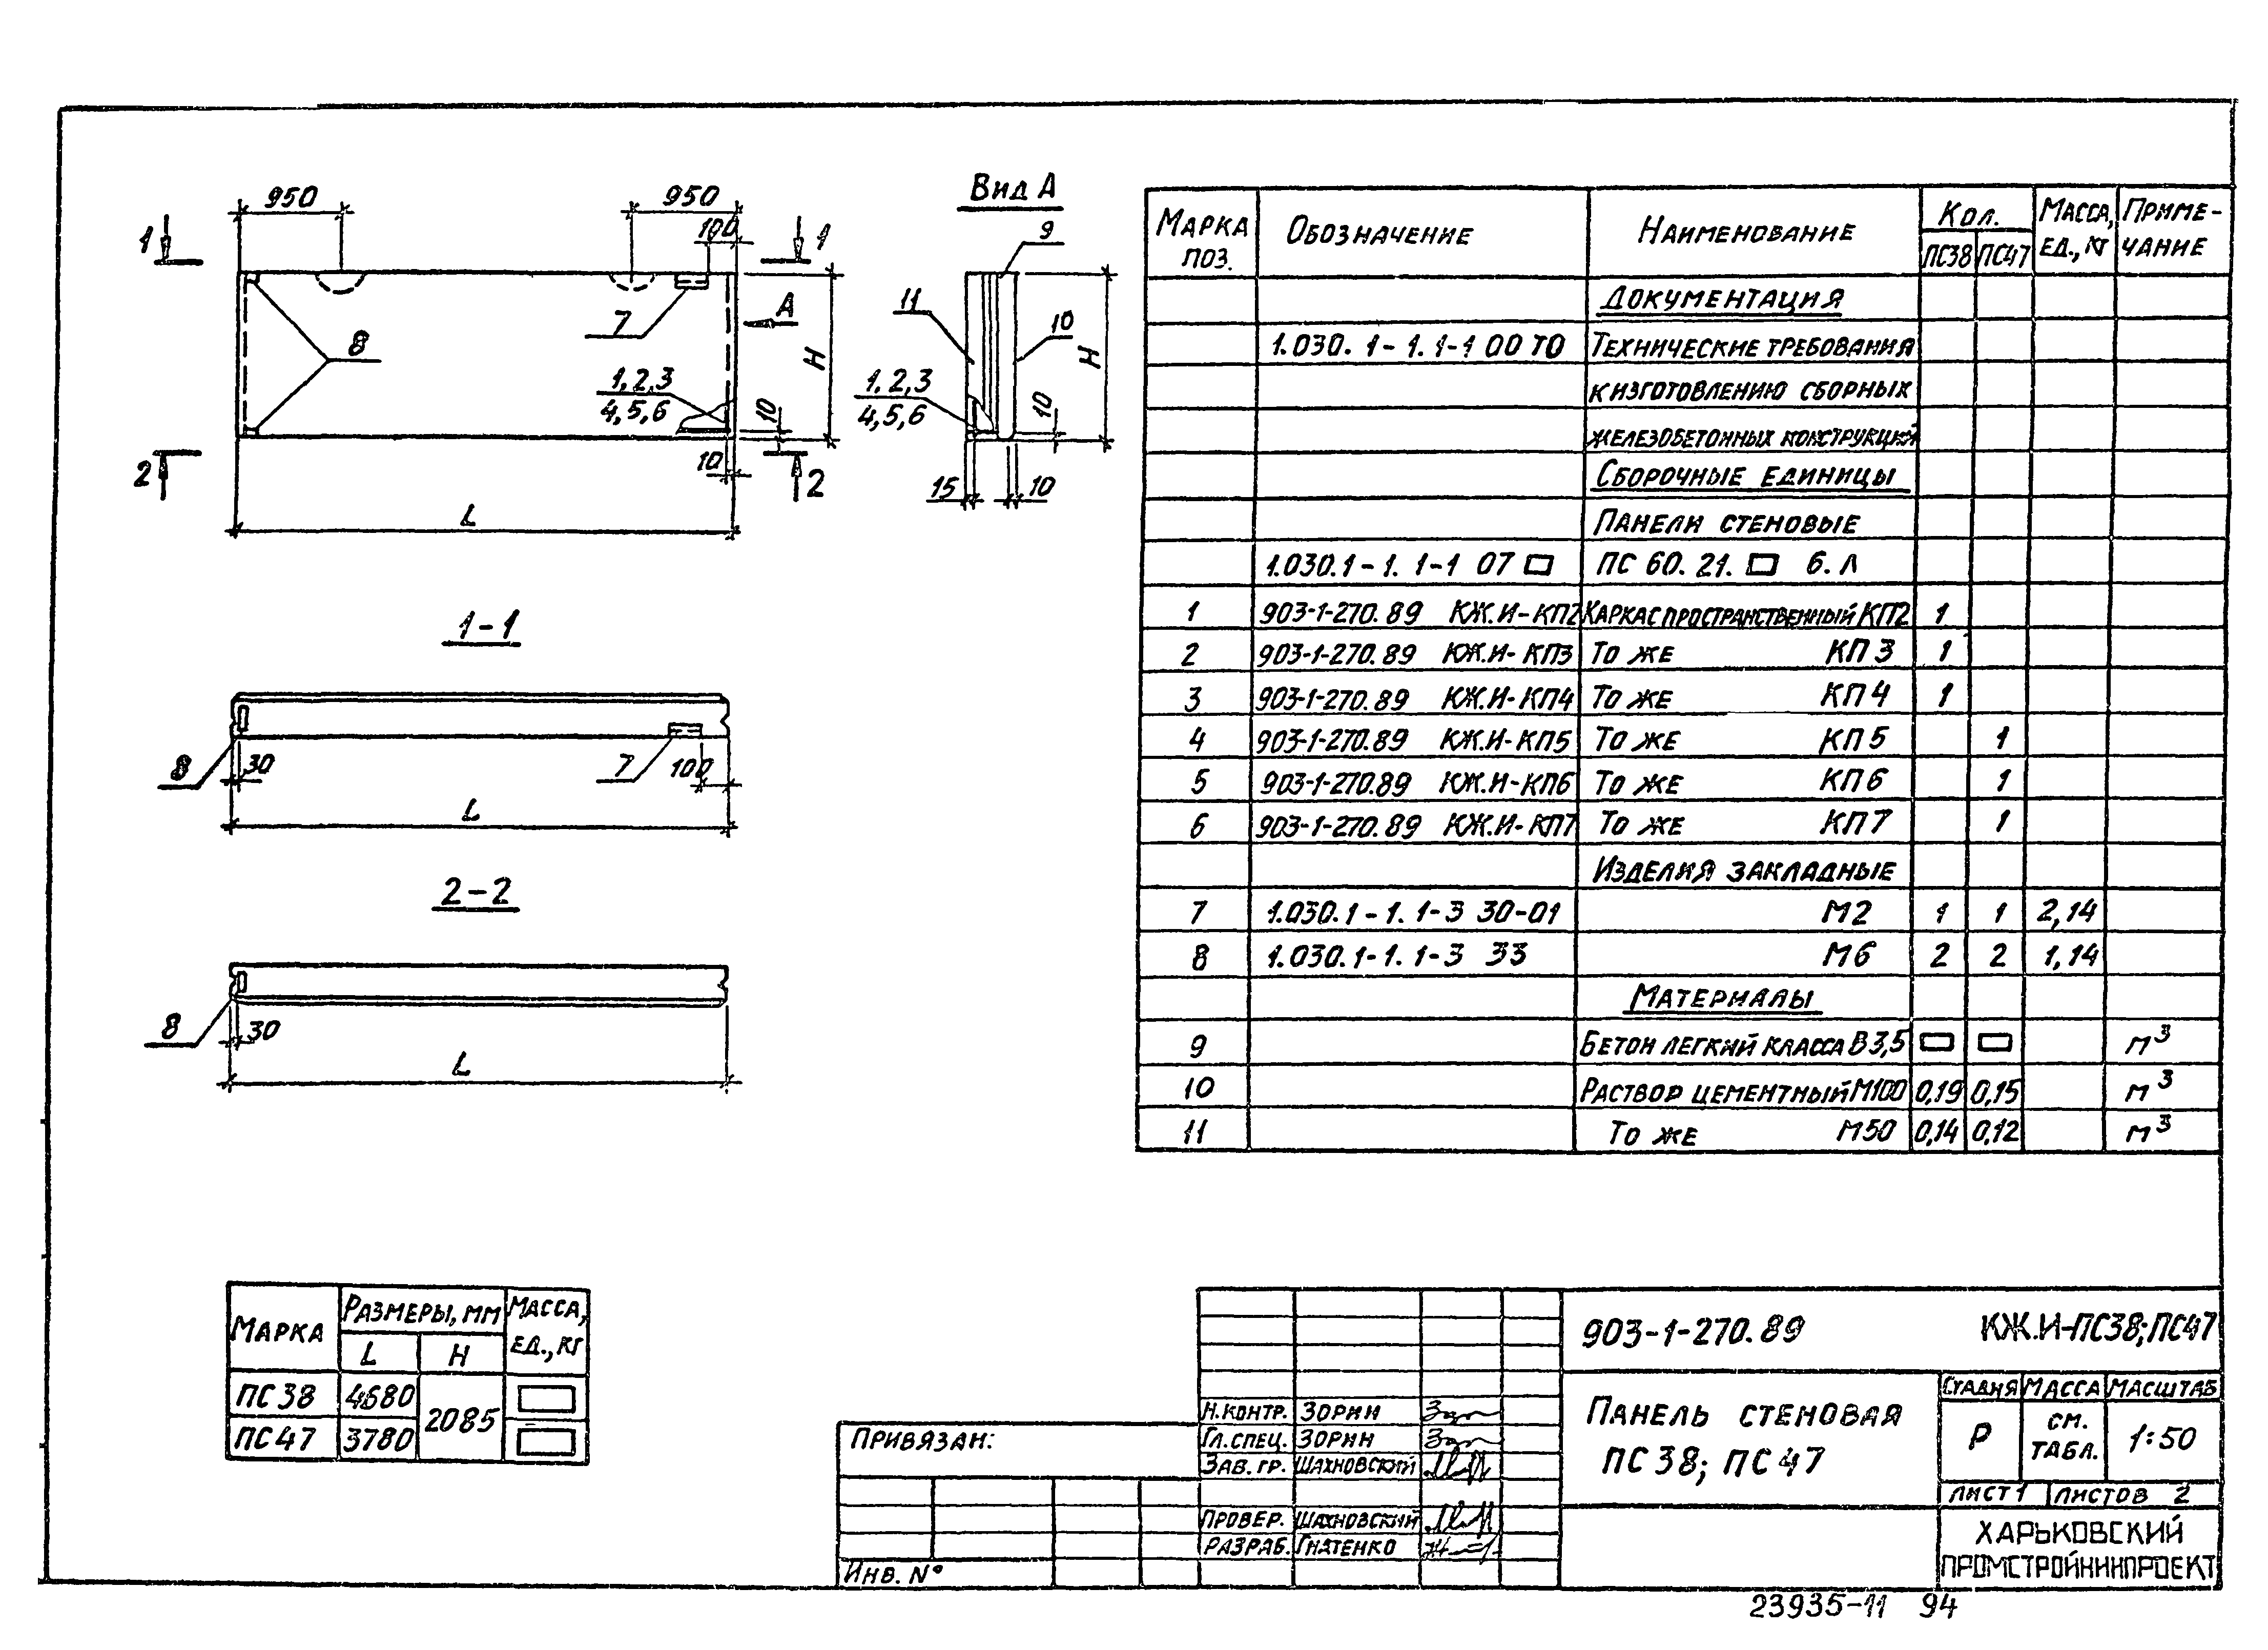 950
950
100
1
1
7
А
8
Н
1,2,3
4,5,6
10
10
2
2
L
Вид А
9
11
10
Н
1,2,3
4,5,6
10
15
10
1-1
8
30
7
100
L
2-2
8
30
L
Марка поз. Обозначение Наименование Кол. Масса, ед., кг Примечание
ПС38 ПС47
Документация
1.030.1-1.1-1 00 ТО Технические требования
к изготовлению сборных
железобетонных конструкций
Сборочные единицы
Панели стеновые
1.030.1-1.1-1 07 □ ПС 60.21.□ 6.л
1 903-1-270.89 КЖ.И-КП2 Каркас пространственный КП2 1
2 903-1-270.89 КЖ.И-КП3 То же КП3 1
3 903-1-270.89 КЖ.И-КП4 То же КП4 1
4 903-1-270.89 КЖ.И-КП5 То же КП5 1
5 903-1-270.89 КЖ.И-КП6 То же КП6 1
6 903-1-270.89 КЖ.И-КП7 То же КП7 1
Изделия закладные
7 1.030.1-1.1-3 30-01 М2 1 1 2,14
8 1.030.1-1.1-3 33 М6 2 2 1,14
Материалы
9 Бетон легкий класса В3,5 □ □ м³
10 Раствор цементный М100 0,19 0,15 м³
11 То же М50 0,14 0,12 м³
Марка Размеры, мм Масса, ед., кг
L Н
ПС38 4680 2085 □
ПС47 3780 □
Привязан:
Инв. №
Н.контр. Зорин
Гл.спец. Зорин
Зав. гр. Шахновский
Провер. Шахновский
Разраб. Гнатенко
903-1-270.89 КЖ.И-ПС38;ПС47
Панель стеновая
ПС38; ПС47
Стадия Масса Масштаб
Р см. табл. 1:50
Лист 1 Листов 2
Харьковский
Промстройниипроект
23935-11 94